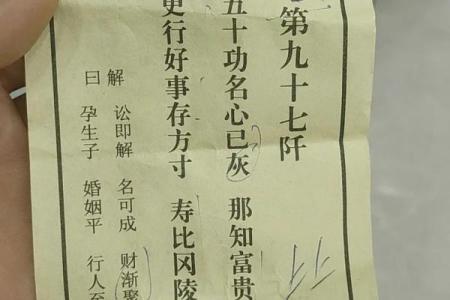 第九十七阡
五十功名心已灰 那知富贵
更行好事存方寸 寿比冈陵
解 讼即解 名可成 财渐聚
曰 孕生子 婚姻平 行人至